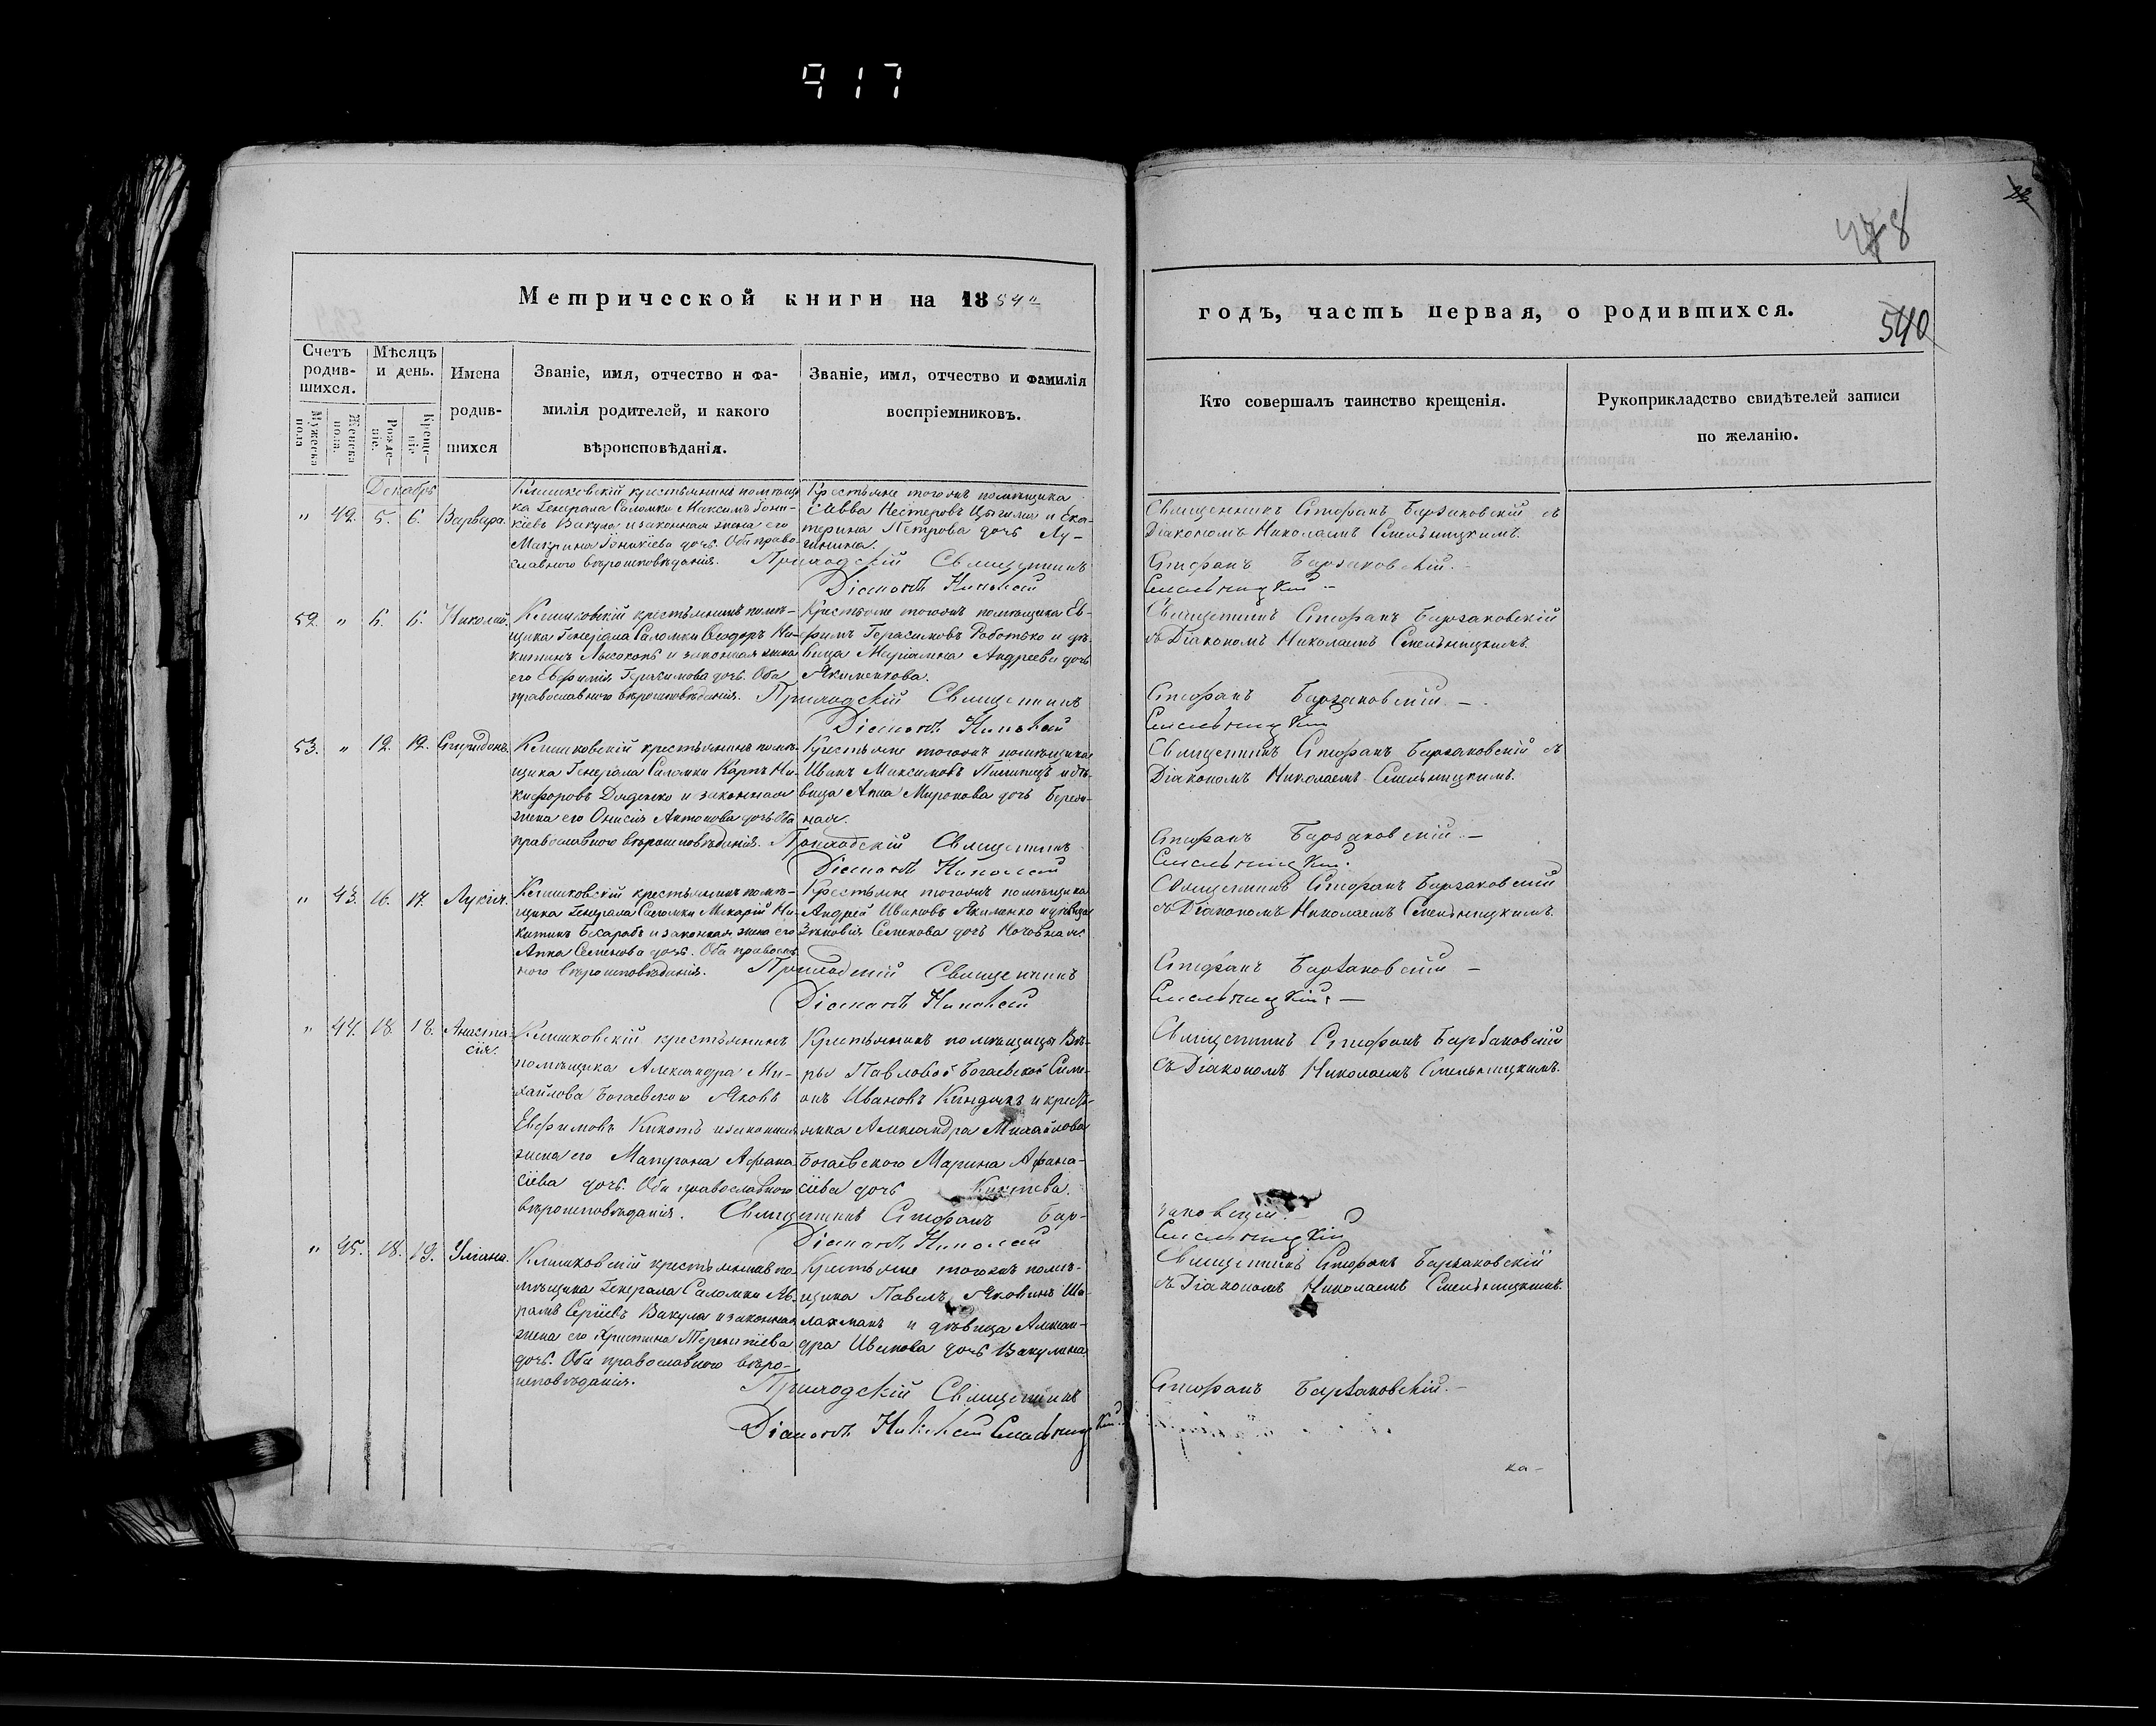 917
22
478
Метрической книги на 1854
годъ, часть первая, о родившихся.
540
Счетъ родившихся.
Мужеска пола
Женска пола.
Мѣсяцъ и день.
Рожденіе.
Крещеніе.
Имена
родив-
шихся
Званіе, имя, отчество и фа-
милія родителей, и какого
вѣроисповѣданія.
Званіе, имя, отчество и фамилія
воспріемниковъ.
Кто совершалъ таинство крещенія.
Рукоприкладство свидѣтелей записи
по желанію.
Декабрь
" 42. 5. 6. Варвара.
Климковскій крестьянинъ помѣщи-
ка Генерала Саломки Максимъ Іони-
кіевъ Вакула и законная жена его
Макрина Іоникіева дочь. Оба право-
славнаго вѣроисповѣданія.
Крестьяне тогожъ помѣщика
Савва Нестеровъ и Ека-
терина Петрова дочь
Священникъ Стефанъ Барзаковскій съ
Діакономъ Николаемъ Смельницкимъ.
Приходскій Священникъ Стефанъ Барзаковскій.
Діаконъ Николай Смельницкій
52. " 6. 6. Николай.
Климковскій крестьянинъ помѣ-
щика Генерала Саломки Ѳеодоръ Ни-
китинъ Лысоконь и законная жена
его Евфимія Герасимова дочь. Оба
православного вѣроисповѣданія.
Крестьяне тогожъ помѣщика Ев-
фимъ Герасимовъ Роботько и дѣ-
вица Маріамна Андреева дочь
Якименкова.
Священникъ Стефанъ Барзаковскій
съ Діакономъ Николаемъ Смельницкимъ.
Приходскій Священникъ Стефанъ Барзаковскій.
Діаконъ Николай Смельницкій
53. " 12. 12. Спиридонъ.
Климковскій крестьянинъ помѣ-
щика Генерала Саломки Карпъ Ни-
кифоровъ Дяденко и законная
жена его Онисія Антонова дочь. Оба
православного вѣроисповѣданія.
Крестьяне тогожъ помѣщика
Иванъ Максимовъ Пилипецъ и дѣ-
вица Анна Миронова дочь Берез-
ная.
Священникъ Стефанъ Барзаковскій съ
Діакономъ Николаемъ Смельницкимъ.
Приходскій Священникъ Стефанъ Барзаковскій.
Діаконъ Николай Смельницкій.
" 43. 16. 17. Лукія.
Климковскій крестьянинъ помѣ-
щика Генерала Саломки Макарій Ни-
китинъ Бесарабъ и законная жена его
Анна Семенова дочь. Оба православ-
ного вѣроисповѣданія.
Крестьяне тогожъ помѣщика
Андрей Ивановъ Якименко и дѣвица
Зѣновія Семенова дочь Ночовная.
Священникъ Стефанъ Барзаковскій
съ Діакономъ Николаемъ Смельницкимъ.
Приходскій Священникъ Стефанъ Барзаковскій
Діаконъ Николай Смельницкій.
" 44. 18. 18. Анаста-
сія.
Климковскій крестьянинъ
помѣщика Александра Ми-
хайлова Богаевского Яковъ
Евфимовъ Кикоть и законная
жена его Матрона Афана-
сіева дочь. Оба православного
вѣроисповѣданія.
Крестьянинъ помѣщицы Вѣ-
ры Павловой Богаевской Симе-
онъ Ивановъ Киндикъ и кресть-
янка Александра Михайлова
Богаевского Марина Афана-
сіева дочь Кикотева.
Священникъ Стефанъ Барзаковскій
съ Діакономъ Николаемъ Смельницкимъ.
Священникъ Стефанъ Бар-
заковскій.
Діаконъ Николай Смельницкій
" 45. 18. 19. Уліана.
Климковскій крестьянинъ по-
мѣщика Генерала Саломки Ав-
рамъ Сергіевъ Вакула и законная
жена его Христина Терентіева
дочь. Оба православного вѣро-
исповѣданія.
Крестьяне тогожъ помѣ-
щика Павелъ Яковлевъ Ша-
лахманъ и дѣвица Алексан-
дра Иванова дочь Вакулина.
Священникъ Стефанъ Барзаковскій
съ Діакономъ Николаемъ Смельницкимъ.
Приходскій Священникъ Стефанъ Барзаковскій.
Діаконъ Николай Смельницкій.
ка-